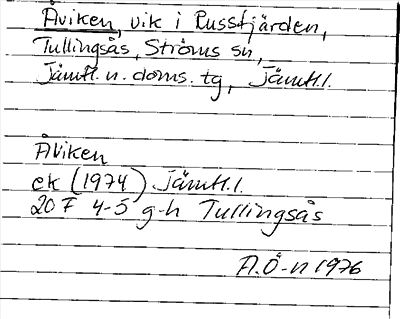 Åviken, vik i Russfjärden,
Tullingsås, Ströms sn,
Jämtl. n. doms. tg, Jämtl. l.
Åviken
ek (1974) Jämtl. l.
20 F 4-5 g-h Tullingsås
A.Ö-n 1976